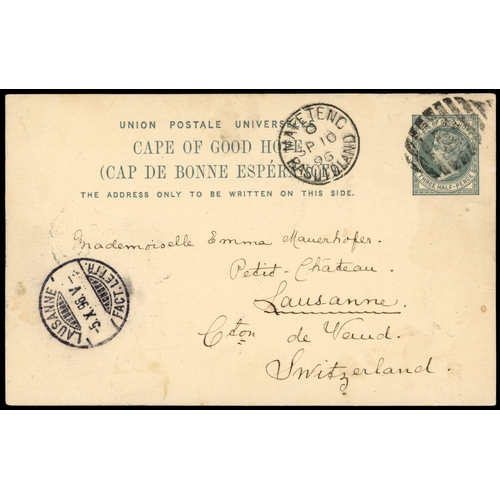 UNION POSTALE UNIVERSELLE
CAPE OF GOOD HOPE
(CAP DE BONNE ESPÉRANCE)
THE ADDRESS ONLY TO BE WRITTEN ON THIS SIDE.
MAFETENG
SP 10
96
BASUTOLAND
THREE HALF-PENCE
Mademoiselle Emma Mauerhofer
Petit-Château
Lausanne.
Cton de Vaud.
Switzerland.
LAUSANNE
5. X. 96. V
FACT. LETTR.